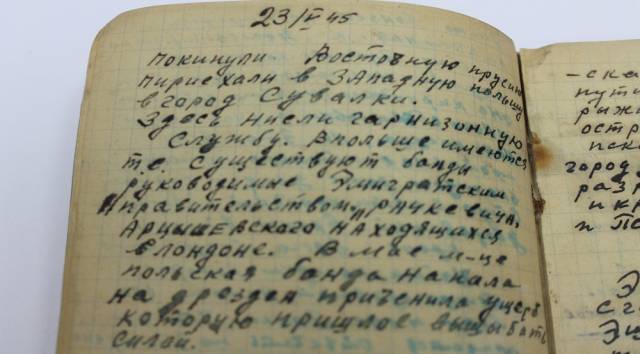 23/V 45
покинули Восточную прусию
пириехали в западную польшу
в город Сувалки.
Здесь нисли гарнизонную
Службу. Впольше имеются
т.е. существуют банды
руководимые Эмигратским
правительством, Рачкевича,
Арцышевского находящихся
влондоне. В мае м-це
польская банда напала
на дрозден приченила ущерб
которую пришлос вышыбать
силой.
-ска
пути
рыжи
остр
пско
город
раз
и кр
и По
Э
сго
Эи